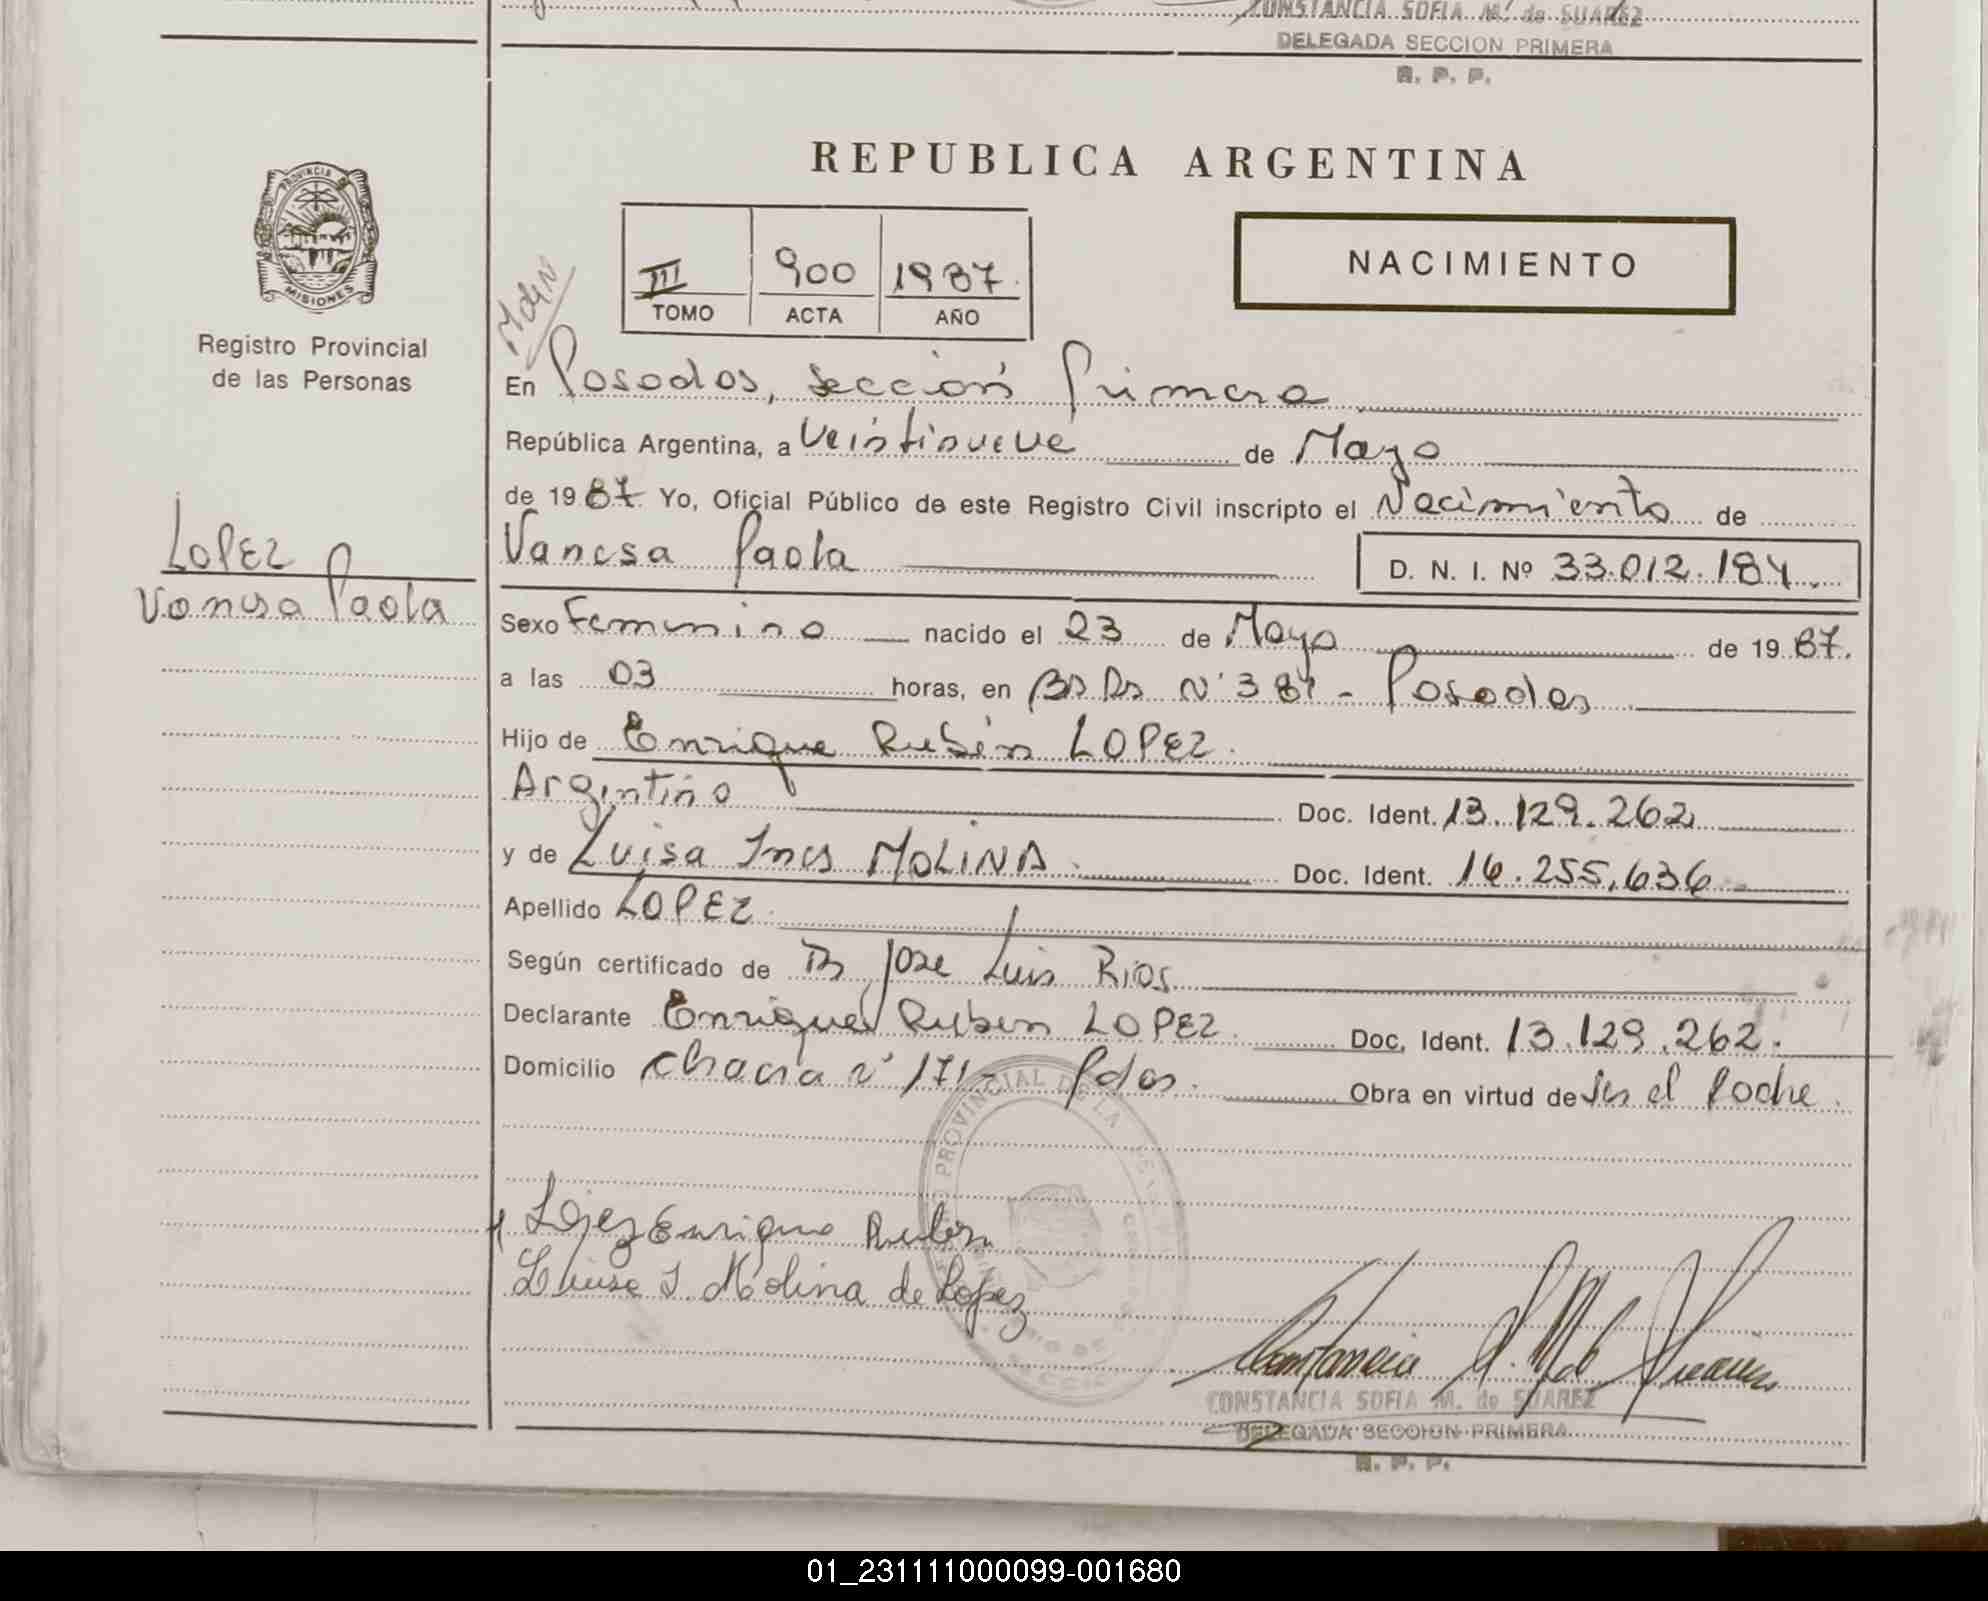 CONSTANCIA SOFIA M. de SUAREZ
DELEGADA SECCION PRIMERA
R. P. P.
REPUBLICA ARGENTINA
PROVINCIA DE
MISIONES
Registro Provincial
de las Personas
III 900 1987.
TOMO ACTA AÑO
NACIMIENTO
En Posadas, Sección Primera
República Argentina, a Veintinueve de Mayo
de 1987. Yo, Oficial Público de este Registro Civil inscripto el Nacimiento de
Vanesa Paola D. N. I. Nº 33.012.184.
LOPEZ
Vanesa Paola
Sexo Femenino nacido el 23 de Mayo de 1987.
a las 03 horas, en Bs As Nº 384 - Posadas
Hijo de Enrique Rubén LOPEZ.
Argentino Doc. Ident. 13.129.262
y de Luisa Ines MOLINA. Doc. Ident. 16.255.636
Apellido LOPEZ.
Según certificado de Dr Jose Luis Rios
Declarante Enrique Ruben LOPEZ. Doc. Ident. 13.129.262.
Domicilio Chacra nº 171- Pdas. Obra en virtud de ser el Padre.
Lopez Enrique Ruben
Luisa I. Molina de Lopez
CONSTANCIA SOFIA M. de SUAREZ
DELEGADA SECCION PRIMERA
R. P. P.
01_231111000099-001680